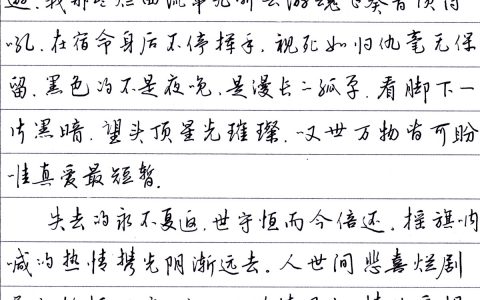 吼.在宿命身后不停挥手.视死如归仇毫无保
留.黑色的不是夜晚.是漫长的孤单.看脚下一
片黑暗.望头顶星光璀璨.叹世万物皆可盼
唯真爱最短暂.
失去的永不复返.世守恒而今倍还.摇旗呐
喊的热情携光阴渐远去.人世间悲喜烂剧